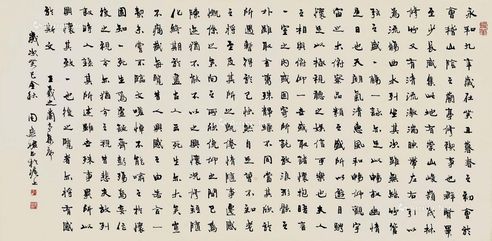 永和九年歲在癸丑暮春之初會於
會稽山陰之蘭亭修稧事也群賢畢
至少長咸集此地有崇山峻領茂林
修竹又有清流激湍映帶左右引以
為流觴曲水列坐其次雖無絲竹管
弦之盛一觴一詠亦足以暢敘幽情
是日也天朗氣清惠風和暢仰觀宇
宙之大俯察品類之盛所以遊目騁
懷足以極視聽之娛信可樂也夫人
之相與俯仰一世或取諸懷抱悟言
一室之內或因寄所託放浪形骸之
外雖取舍萬殊靜躁不同當其欣於
所遇暫得於己快然自足不知老之
將至及其所之既倦情隨事遷感慨
係之矣向之所欣俛仰之間以為陳
跡猶不能不以之興懷況修短隨
化終期於盡古人云死生亦大矣豈
不痛哉每攬昔人興感之由若合一
契未嘗不臨文嗟悼不能喻之於懷
固知一死生為虛誕齊彭殤為妄作
後之視今亦由今之視昔悲夫故列
敘時人錄其所述雖世殊事異所以
興懷其致一也後之攬者亦將有感
於斯文
王羲之蘭亭集序
歲次癸巳金秋